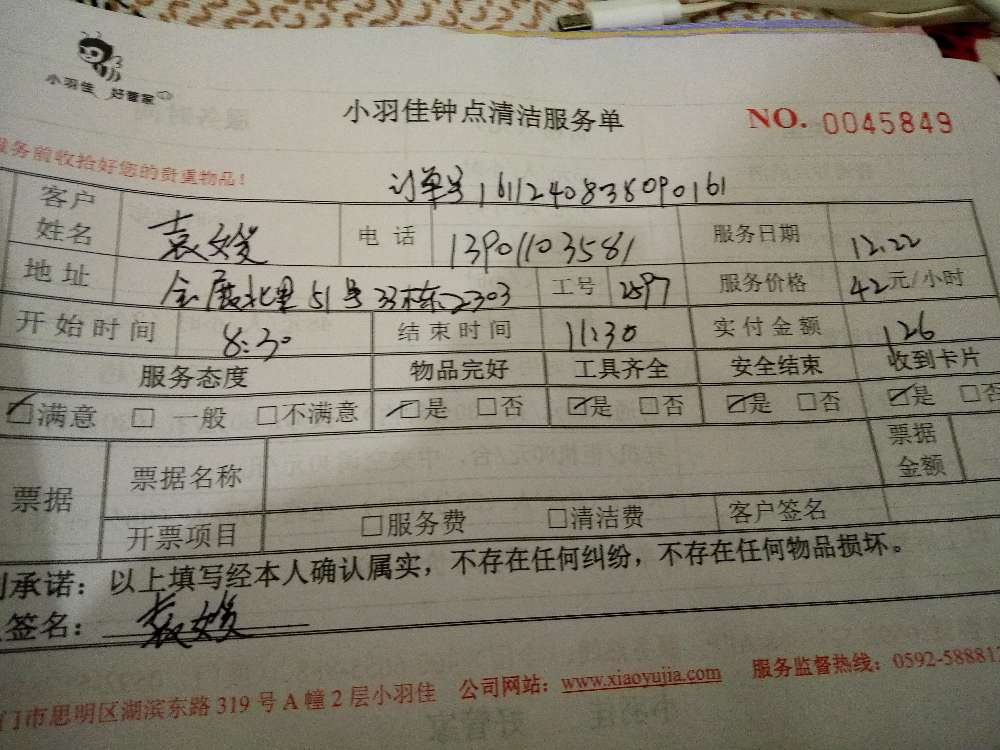 小羽佳 好管家
小羽佳钟点清洁服务单
NO. 0045849
服务前收拾好您的贵重物品!
订单号 161124083809016 1
客户姓名 袁姣 电话 13901103581 服务日期 12.22
地址 会展北里51号33栋2303 工号 2597 服务价格 42元/小时
开始时间 8:30 结束时间 11:30 实付金额 126
服务态度 物品完好 工具齐全 安全结束 收到卡片
☑满意 □ 一般 □不满意 ☑是 □否 ☑是 □否 ☑是 □否 ☑是 □否
票据 票据名称 票据金额
开票项目 □服务费 □清洁费 客户签名
承诺：以上填写经本人确认属实，不存在任何纠纷，不存在任何物品损坏。
签名： 袁姣
门市思明区湖滨东路 319 号 A 幢 2 层小羽佳 公司网站：www.xiaoyujia.com 服务监督热线：0592-588881